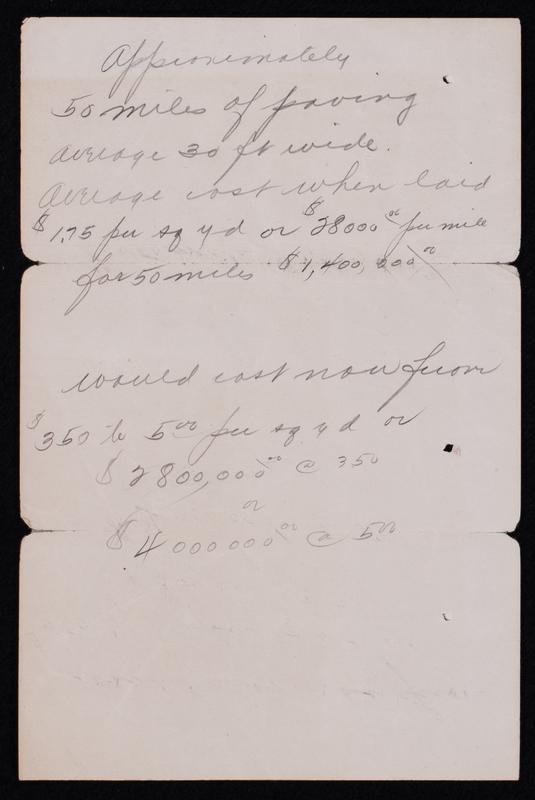 Approximately
50 miles of paving
average 30 ft wide.
Average cost when laid
$1.75 per sq yd or $28000 00 per mile
for 50 miles $1,400,000 00
would cost now from
$350 to 5 00 per sq yd or
$2800,000 00 @ 350
or
$4000000 00 @ 5 00